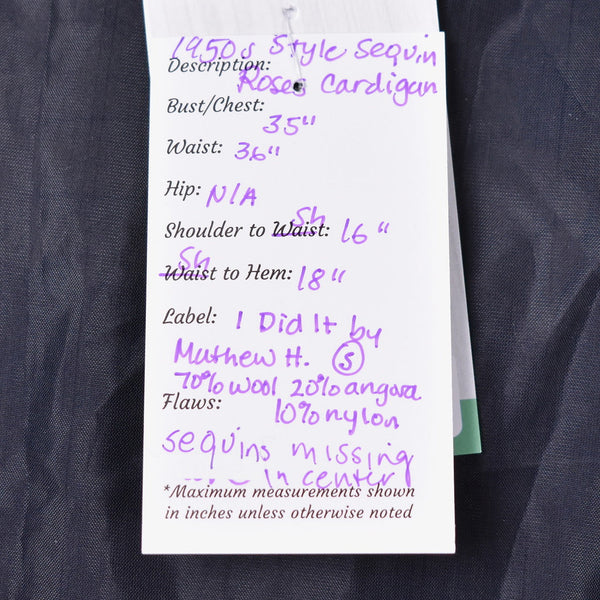 1950s Style Sequin
Description:
Roses Cardigan
Bust/Chest:
35"
Waist: 36"
Hip: N/A
Sh
Shoulder to Waist: 16"
Sh
Waist to Hem: 18"
Label: I Did It by
Mathew H. S
70% wool 20% angora
Flaws: 10% nylon
sequins missing
in center
*Maximum measurements shown
in inches unless otherwise noted